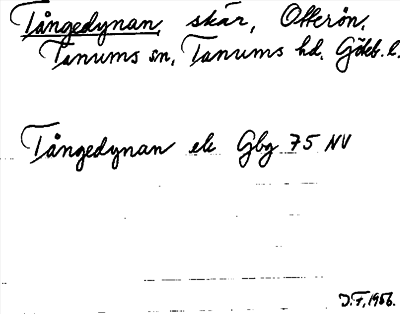 Tångedynan, skär, Otterön,
Tanums sn, Tanums hd. Göteb. l.
Tångedynan ek Gbg 75 NV
J.F, 1956.